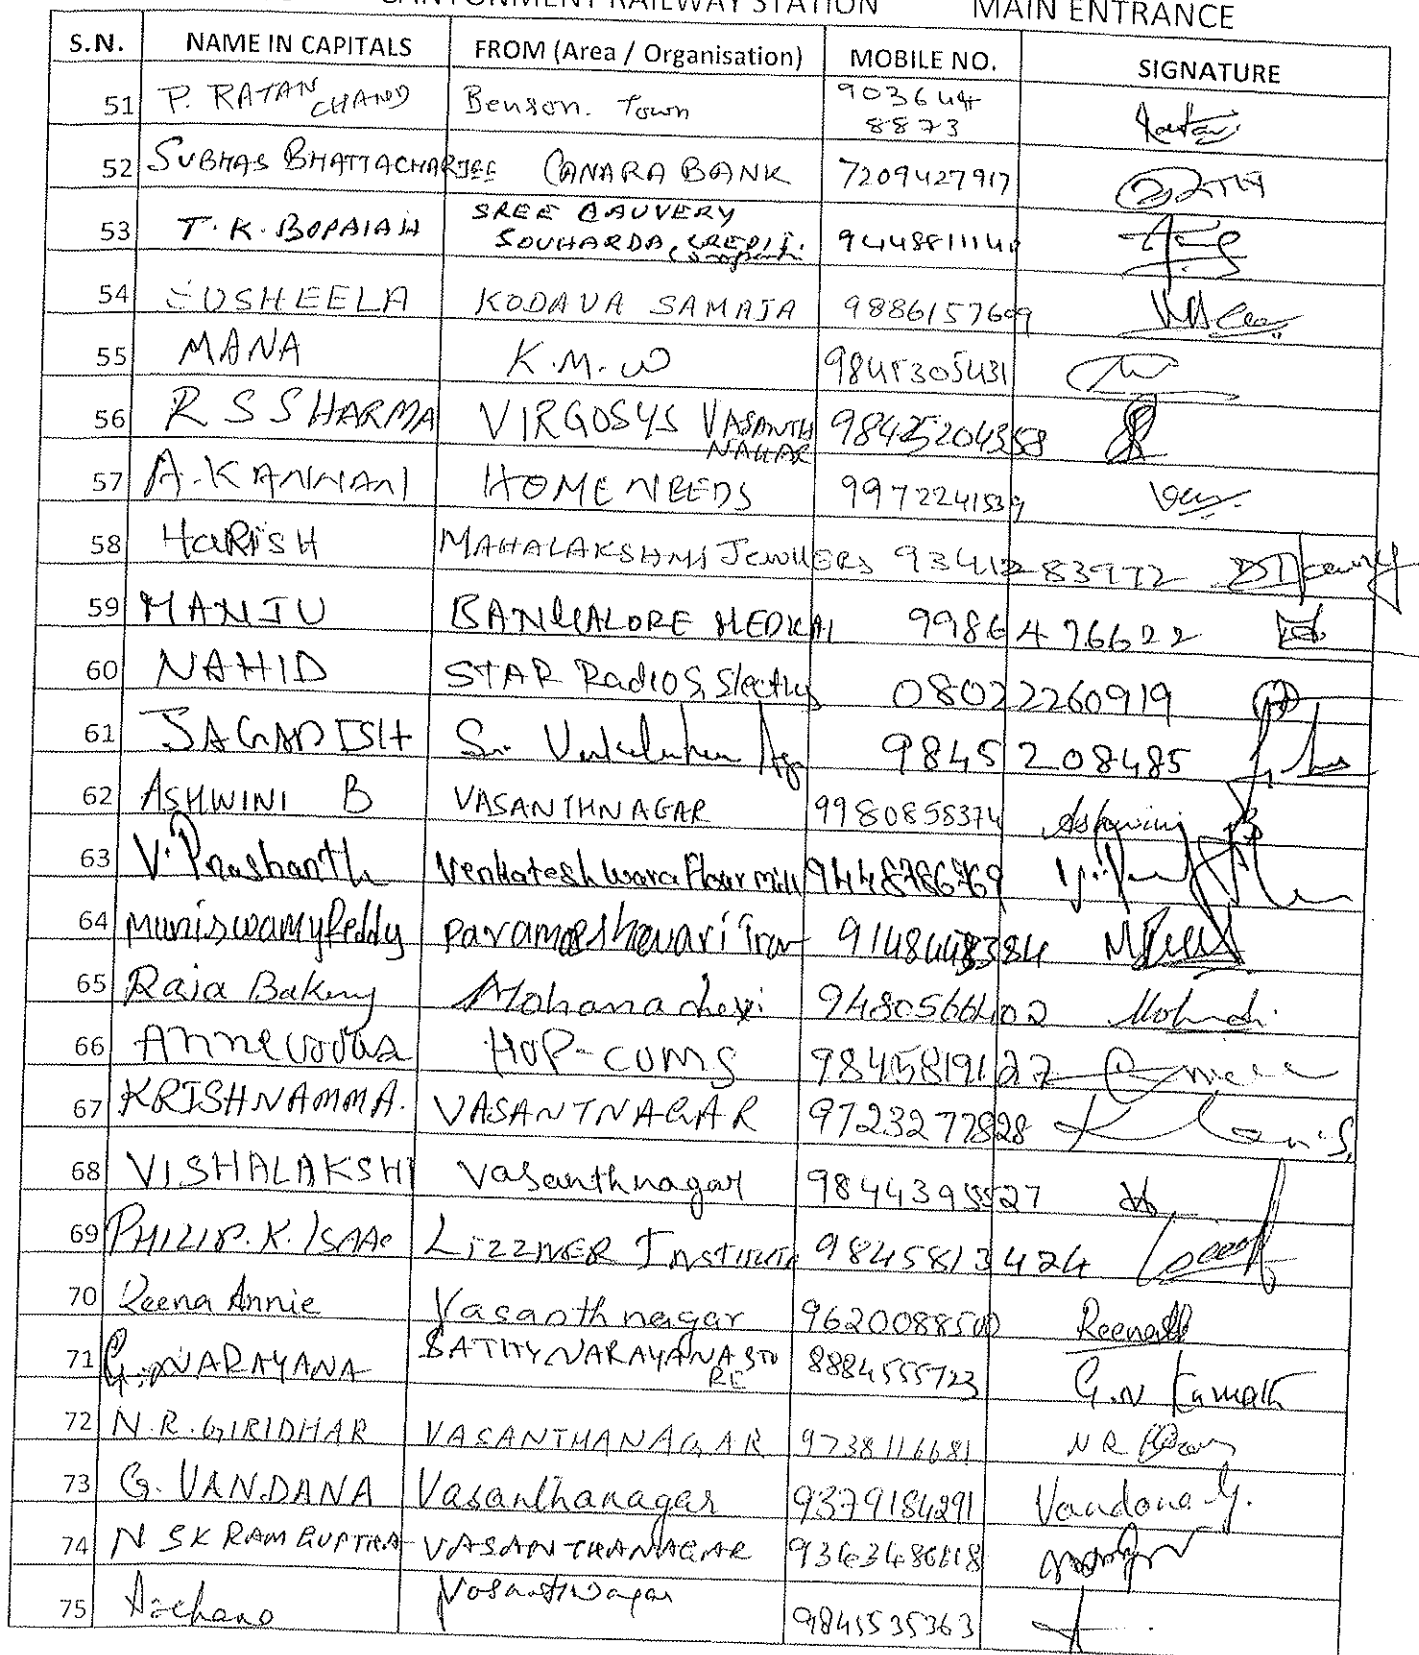 CANTONMENT RAILWAY STATION MAIN ENTRANCE
S.N. NAME IN CAPITALS FROM (Area / Organisation) MOBILE NO. SIGNATURE
51 P. RATAN CHAND Benson. Town 903644 8873
52 SUBHAS BHATTACHARJEE CANARA BANK 7209427917
53 T. K. BOPAIAH SREE CAUVERY SOUHARDA, CREDIT.
54 SUSHEELA KODAVA SAMAJA 9886157609
55 MANA K.M. W 9845305431
56 R S SHARMA VIRGOSYS VASANTH NAGAR
57 A. KANWANI HOME NEEDS 9972241539
58 HARISH MAHALAKSHMI JEWLLERS
59 MANJU BANGALORE MEDICAL 9986476622
60 NAHID STAR Radios 08022260919
61 JAGADISH Sri 9845208485
62 ASHWINI B VASANTHNAGAR 9980858374 Ashwini
63 V. Prashanth Venkateshwara Flour mill
64 Muniswamy Reddy Parameshawari
65 Raja Bakery Mohana devi 9480566402
66 HOP-COMS 9845819127
67 KRISHNAMMA. VASANTNAGAR
68 VISHALAKSHI Vasanthnagar
69 PHILIP. K. ISAAC LIZZNER INSTITUTE 9845813424
70 Reena Annie Vasanthnagar 9620088500
71 G. NARAYANA SATHYNARAYANA STORE 8884555723 G.N Kamath
72 N.R. GIRIDHAR VASANTHANAGAR 9738116681
73 G. VANDANA Vasanthanagar 9379184291 Vandana G.
74 N SK RAM GUPTHA VASANTHANAGAR
75 Archana Vasanthnagar 9845535363